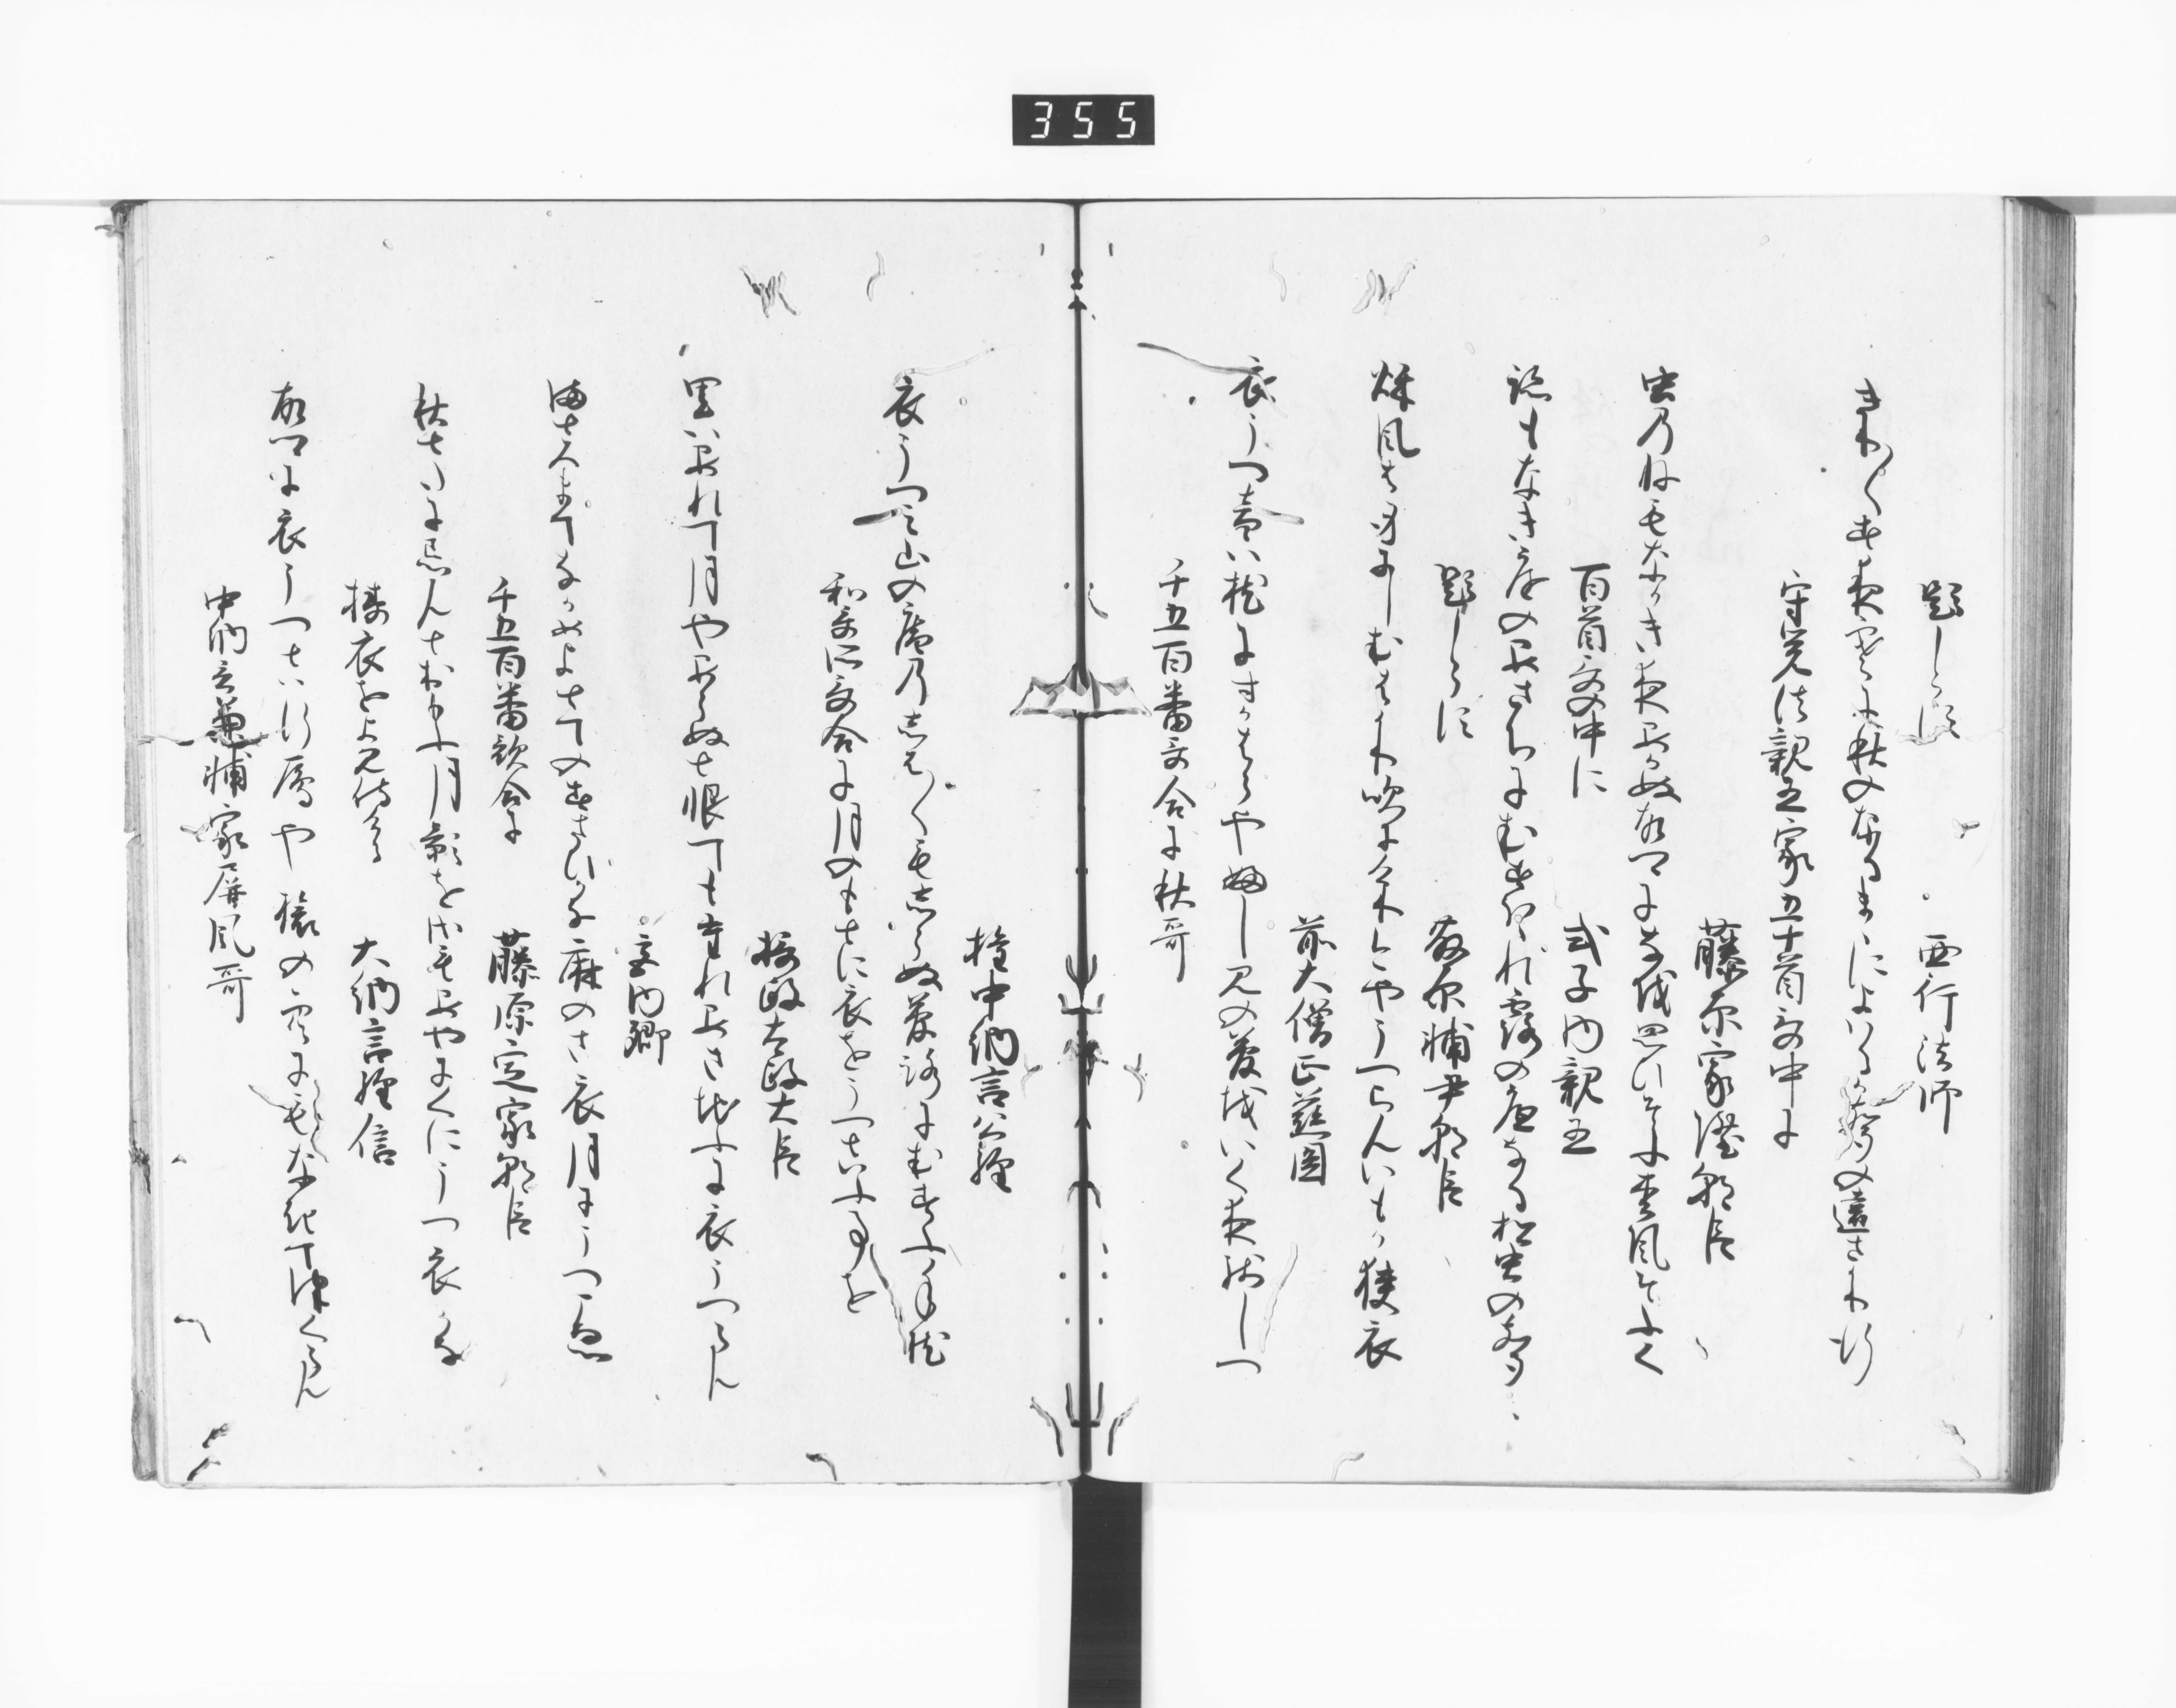 355
題しらす　西行法師
きり〱す夜寒に秋のなるまゝによはるか聲の遠さかり行
守覚法親王家五十首哥中に
藤原家隆朝臣
虫乃ねもなかき夜あかぬ故郷に猶思ひそふ松風そふく
百首哥中に　式子内親王
跡もなき庭のあさちにむすほゝれ露の底なる松虫の聲
題しらす　藤原輔尹朝臣
秋風は身にしむはかり吹にけり今やうつらんいもか狭衣
前大僧正慈圓
衣うつ音は枕にすかはらや伏見の夢をいく夜残しつ
千五百番哥合に秋哥
権中納言公経
衣うつみ山の庵乃しは〱もしらぬ夢路にむすふ手枕
和哥所哥合に月のもとに衣をうつといふ事を
摂政太政大臣
里はあれて月やあらぬと恨てもたれあさちふに衣うつらん
宮内卿
まとろまてなかめよとてのすさひかな麻のさ衣月にうつ声
千五百番歌合に　藤原定家朝臣
秋とたに忘んとおもふ月影をさもあやにくにうつ衣かな
擣衣をよみ侍ける　大納言経信
故郷に衣うつとは行鴈や旅の空にもなきて告くらん
中納言兼輔家屏風哥